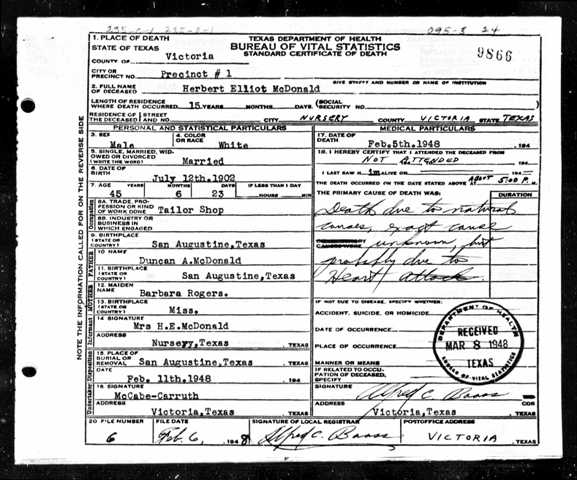 095-8 24
9866
TEXAS DEPARTMENT OF HEALTH
BUREAU OF VITAL STATISTICS
STANDARD CERTIFICATE OF DEATH
1. PLACE OF DEATH
STATE OF TEXAS
COUNTY OF Victoria
CITY OR PRECINCT NO. Precinct # 1
GIVE STREET AND NUMBER OR NAME OF INSTITUTION
2. FULL NAME OF DECEASED Herbert Elliot McDonald
LENGTH OF RESIDENCE WHERE DEATH OCCURRED 15 YEARS MONTHS DAYS (SOCIAL SECURITY NO.
RESIDENCE OF THE DECEASED STREET AND NO. CITY NURSERY COUNTY VICTORIA STATE TEXAS
NOTE THE INFORMATION CALLED FOR ON THE REVERSE SIDE
PERSONAL AND STATISTICAL PARTICULARS
3. SEX Male
4. COLOR OR RACE White
5. SINGLE, MARRIED, WIDOWED OR DIVORCED (WRITE THE WORD) Married
6. DATE OF BIRTH July 12th.1902
7. AGE 45 YEARS 6 MONTHS 23 DAYS IF LESS THAN 1 DAY HOURS MIN
Occupation
8A. TRADE, PROFESSION OR KIND OF WORK DONE Tailor Shop
8B. INDUSTRY OR BUSINESS IN WHICH ENGAGED
9. BIRTHPLACE (STATE OR COUNTRY) San Augustine,Texas
FATHER
10. NAME Duncan A.McDonald
11. BIRTHPLACE (STATE OR COUNTRY) San Augustine,Texas
MOTHER
12. MAIDEN NAME Barbara Rogers.
13. BIRTHPLACE (STATE OR COUNTRY) Miss.
Informant
14. SIGNATURE Mrs H.E.McDonald
ADDRESS Nursery,Texas , TEXAS
Disposition
15. PLACE OF BURIAL OR REMOVAL San Augustine,Texas , TEXAS
DATE Feb. 11th.1948 , 194
Undertaker
16. SIGNATURE McCabe-Carruth
ADDRESS Victoria,Texas , TEXAS
MEDICAL PARTICULARS
17. DATE OF DEATH Feb.5th.1948 , 194
18. I HEREBY CERTIFY THAT I ATTENDED THE DECEASED FROM NOT ATTENDED
I LAST SAW H im ALIVE ON
THE DEATH OCCURRED ON THE DATE STATED ABOVE AT ABOUT 5:00 P. M.
THE PRIMARY CAUSE OF DEATH WAS: DURATION
Death due to natural
causes, exact cause
unknown, but
probably due to
Heart attack
IF NOT DUE TO DISEASE, SPECIFY WHETHER:
ACCIDENT, SUICIDE, OR HOMICIDE
DATE OF OCCURRENCE
PLACE OF OCCURRENCE
MANNER OR MEANS
IF RELATED TO OCCUPATION OF DECEASED, SPECIFY
SIGNATURE Alfred C. Baass
ADDRESS Victoria,Texas , TEXAS
DEPARTMENT OF HEALTH
RECEIVED
MAR 8 1948
TEXAS
BUREAU OF VITAL STATISTICS
20. FILE NUMBER 6
FILE DATE Feb. 6, 1948
SIGNATURE OF LOCAL REGISTRAR Alfred C. Baass
POSTOFFICE ADDRESS VICTORIA , TEXAS